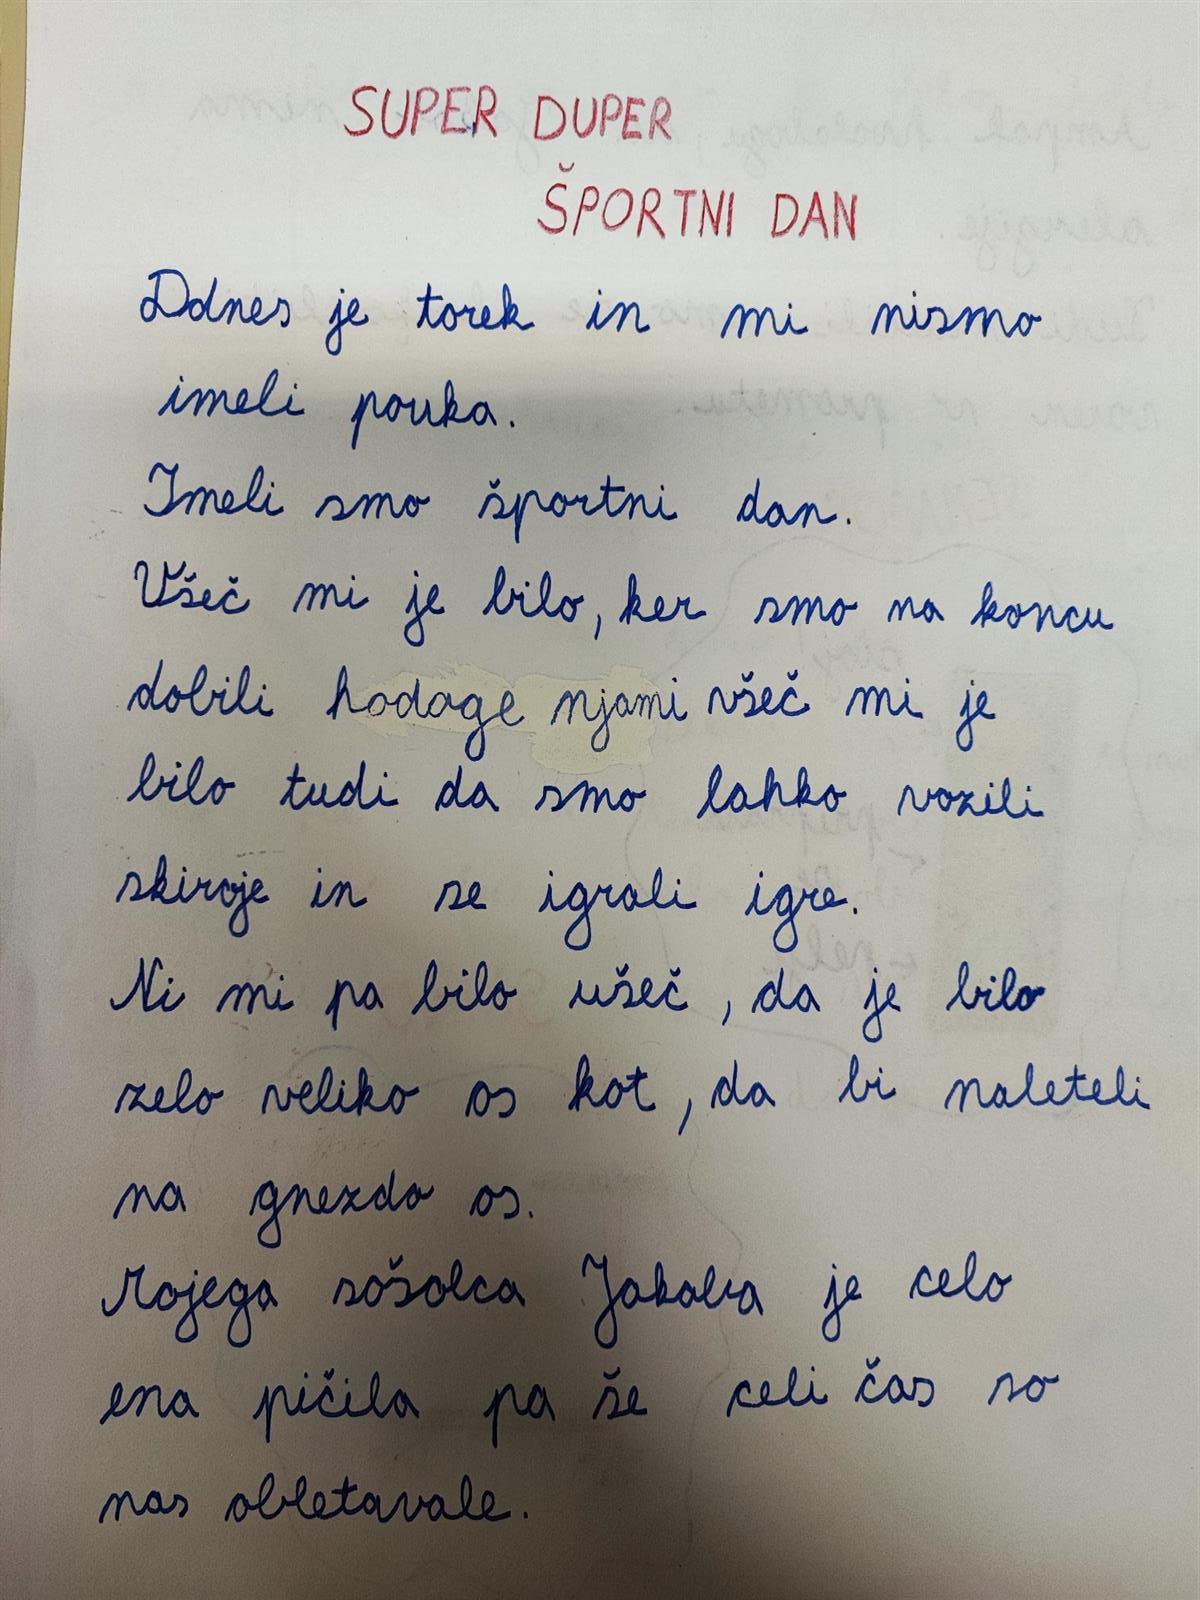 SUPER DUPER
ŠPORTNI DAN
Ddnes je torek in mi nismo
imeli pouka.
Imeli smo športni dan.
Všeč mi je bilo, ker smo na koncu
dobili hodoge njami všeč mi je
bilo tudi da smo lahko vozili
skiroje in se igrali igre.
Ni mi pa bilo ušeč, da je bilo
zelo veliko os kot, da bi naleteli
na gnezdo os.
Mojega sošolca Jakoba je celo
ena pičila pa še celi čas so
nas obletavale.